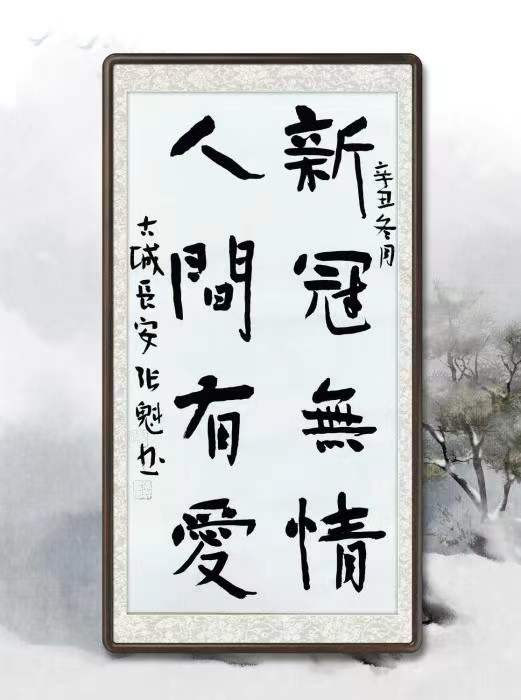 辛丑冬月
新冠無情
人間有愛
古城長安張魁书